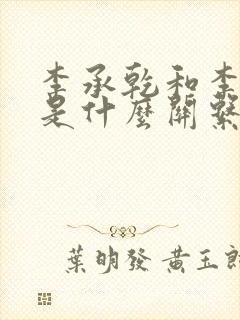 李承乾和李
是什麼關繫
葉明發 黃玉郎